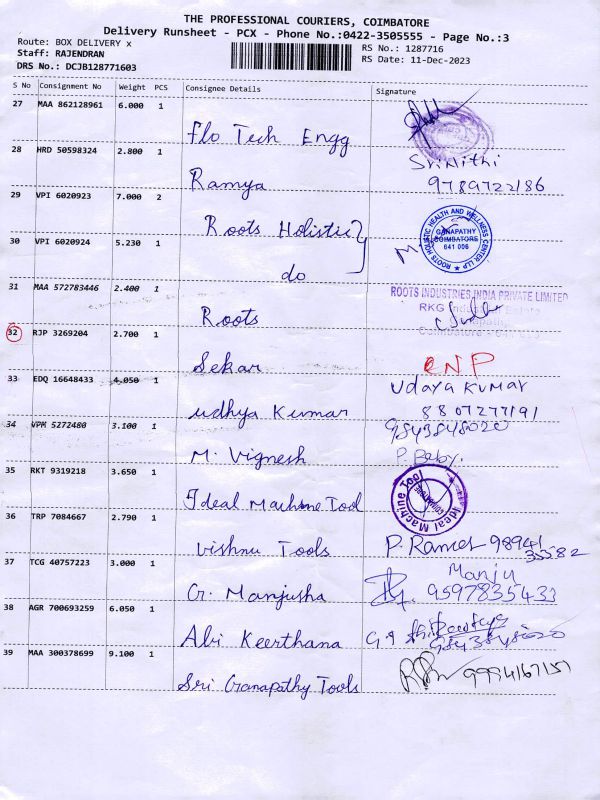 THE PROFESSIONAL COURIERS, COIMBATORE
Delivery Runsheet - PCX - Phone No.:0422-3505555 - Page No.:3
Route: BOX DELIVERY x
RS No.: 1287716
Staff: RAJENDRAN
RS Date: 11-Dec-2023
DRS No.: DCJB128771603
S No Consignment No Weight PCS Consignee Details Signature
27 MAA 862128961 6.000 1
Flo Tech Engg
28 HRD 50598324 2.800 1
Srinithi
Ramya 9789722186
29 VPI 6020923 7.000 2
Roots Holistic
ROOTS HOLISTIC HEALTH AND WELLNESS CENTER LLP
GANAPATHY
COIMBATORE
641 006
30 VPI 6020924 5.230 1
do
31 MAA 572783446 2.400 1
ROOTS INDUSTRIES INDIA PRIVATE LIMITED
RKG
Roots
32 RJP 3269204 2.700 1
Sekar CNP
33 EDQ 16648433 4.050 1
Udaya Kumar
udhya Kumar 8807277191
34 VPM 5272480 3.100 1
9843848020
M. Vignesh P. Baby.
35 RKT 9319218 3.650 1
Ideal Machine Tool
Ideal Machine Tool
COIMBATORE
36 TRP 7084667 2.790 1
Vishnu Tools
37 TCG 40757223 3.000 1
Manju
G. Manjusha 9597835433
38 AGR 700693259 6.050 1
Abi Keerthana
39 MAA 300378699 9.100 1
Sri Ganapathy Tools